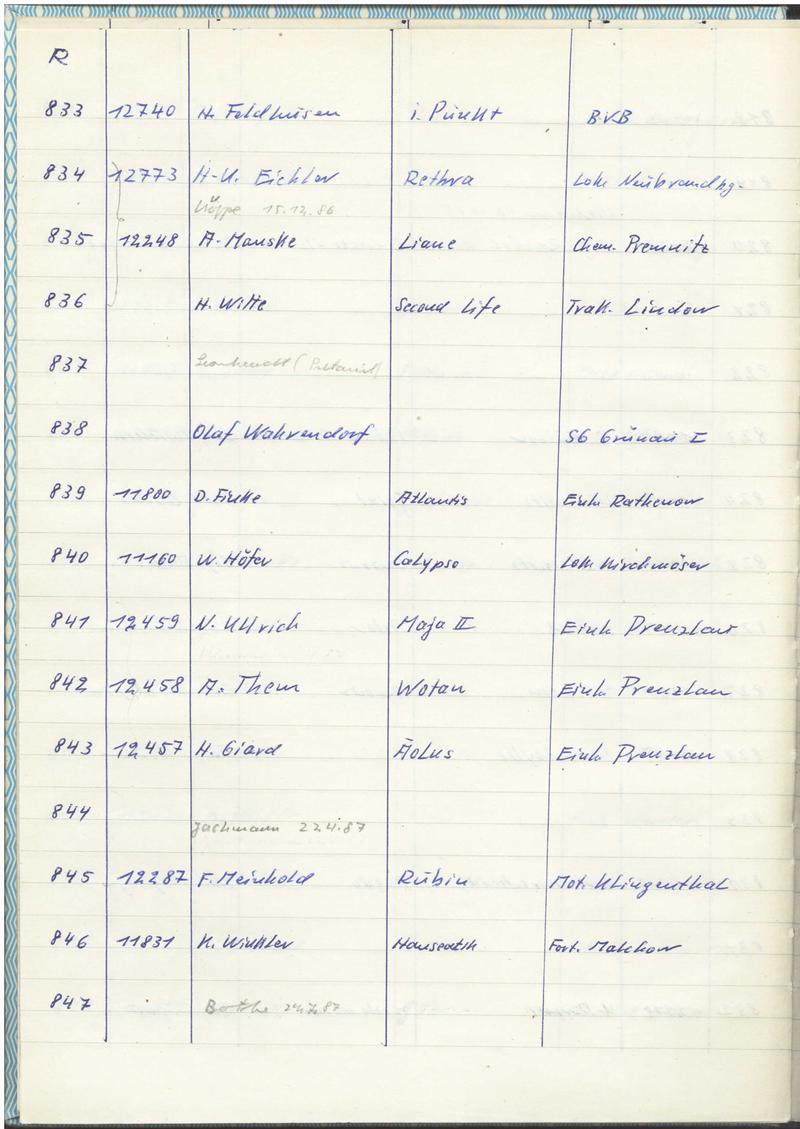 R
833 12740 H. Feldhusen i. Punkt BVB
834 12773 H-U. Eichler Rethra Lok Neubrandbg.
Höppe 15.12.86
835 12248 A. Manske Liane Chem. Premnitz
836 H. Witte Second Life Trak. Lindow
837
838 Olaf Wahrendorf SG Grünau I
839 11800 D. Finke Atlantis Einh. Rathenow
840 11160 W. Höfer Calypso Lok Kirchmöser
841 12459 N. Ullrich Maja II Einh. Prenzlau
842 12458 A. Them Wotan Einh. Prenzlau
843 12457 H. Giard Äolus Einh. Prenzlau
844
Jachmann 22.4.87
845 12287 F. Meinhold Rubin Mot. Klingenthal
846 11831 K. Winkler Hanseatik Fort. Malchow
847 Bothe 24.7.87